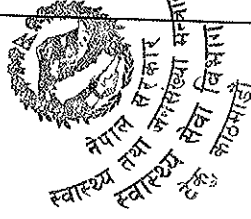 नेपाल सरकार
स्वास्थ्य तथा जनसंख्या मन्त्रा
स्वास्थ्य सेवा विभाग
टेकु, काठमाडौं